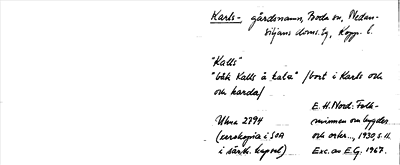 Karls- gårdsnamn, Boda sn, Nedan-
siljans doms.tg, Kopp. l.
"Kalls"
"båk Kalls å kala" /bort i Karls och
och karda/
E.H. Nord: Folk-
minnen om bygder
och orter.., 1930, s. 11.
Exc. av E.G. 1967.
Uma 2294
(xerokopia i SOA
i särsk. kapsel)